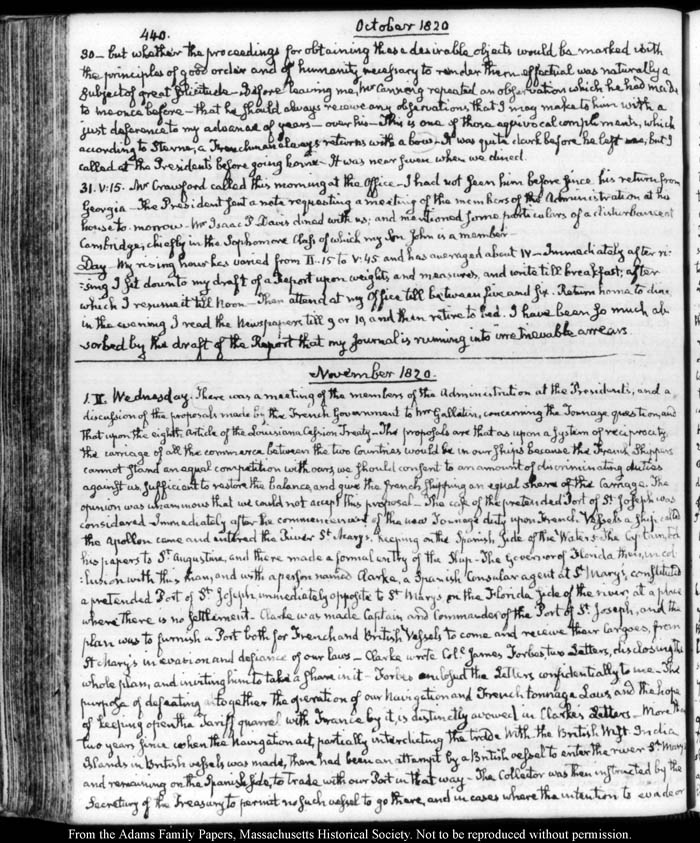 440.
October 1820
30 – but whether the proceedings for obtaining these desirable objects would be marked with
the principles of good order and of humanity necessary to render them effectual was naturally a
subject of great solicitude – Before leaving me, Mr Canning repeated an observation which he had made
to me once before – that he should always receive any observations that I may make to him with a
just deference to my advance of years – over his – This is one of those equivocal compliments, which
according to Sterne, a Frenchman always returns with a bow – It was quite dark before he left me, but I
called at the Presidents before going home – It was near seven when we dined.
31. V:15. Mr Crawford called this morning at the Office – I had not seen him before since his return from
Georgia – The President sent a note requesting a meeting of the members of the Administration at his
house to-morrow. Mr Isaac P. Davis dined with us; and mentioned some particulars of a disturbance at
Cambridge, chiefly in the Sophomore Class of which my Son John is a member –
Day. My rising hour has varied from III.15 to V:45 and has averaged about IV – Immediately after ri-
:sing I sit down to my draft of a Report upon weights and measures, and write till breakfast; after
which I resume it till Noon – Then attend at my Office till between five and six. Return home to dine,
in the evening I read the Newspapers till 9 or 10, and then retire to bed. I have been so much ab-
sorbed by the draft of the Report that my Journal is running into irretrievable arrears.
November 1820.
1. Wednesday. There was a meeting of the members of the Administration at the Presidents, and a
discussion of the proposals made by the French Government to Mr Gallatin, concerning the Tonnage question, and
that upon the eighth Article of the Louisiana Cession Treaty – The proposals are that as upon a system of reciprocity
the carriage of all the commerce between the two Countries would be in our ships because the French Shippers
cannot stand an equal competition with ours, we should consent to an amount of discriminating duties
against us, sufficient to restore the balance, and give the French shipping an equal share of the Carriage. The
opinion was unanimous that we could not accept this proposal – The case of the pretended Port of St Joseph was
considered. Immediately after the commencement of the new Tonnage duty upon French Vessels a ship called
the Apollon came and entered the River St Mary's, keeping on the Spanish side of the Waters. The Captain
his papers to St Augustine, and there made a formal entry of the Ship – The Governor of Florida then, in col-
:lusion with this man, and with a person named Clarke, a Spanish Consular agent at St Mary's, constituted
a pretended Port of St Joseph immediately opposite to St Marys on the Florida side of the river, at a place
where there is no settlement – Clarke was made Captain and Commander of the Port of St Joseph, and the
plan was to furnish a Port both for French and British Vessels to come and receive their cargoes, from
St Mary's in evasion and defiance of our laws – Clarke wrote Coll James Forbes two Letters, disclosing the
whole plan, and inviting him to take a share in it – Forbes enclosed the Letters confidentially to me – The
purpose of defeating altogether the operation of our Navigation and French tonnage Laws and the hope
of keeping open the Tariff quarrel with France by it, is distinctly avowed in Clarke's Letters – More than
two years since when the Navigation act, partially interdicting the trade with the British West India
Islands in British vessels was made, there had been an attempt by a British vessel to enter the river St Mary's
and remaining on the Spanish side, to trade with our Port in that way – The Collector was then instructed by the
Secretary of the Treasury to permit no such vessel to go there, and in cases where the intention to evade or
From the Adams Family Papers, Massachusetts Historical Society. Not to be reproduced without permission.